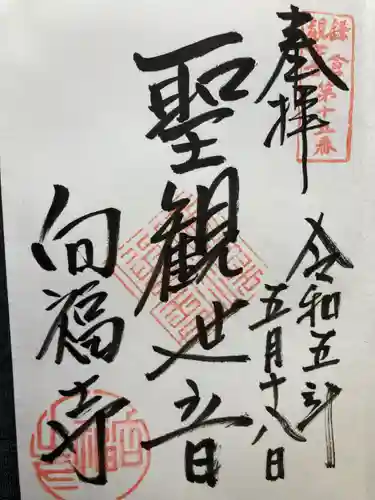 奉拝
鎌倉
観音第十五番
令和五年
五月十八日
聖観世音
向福寺